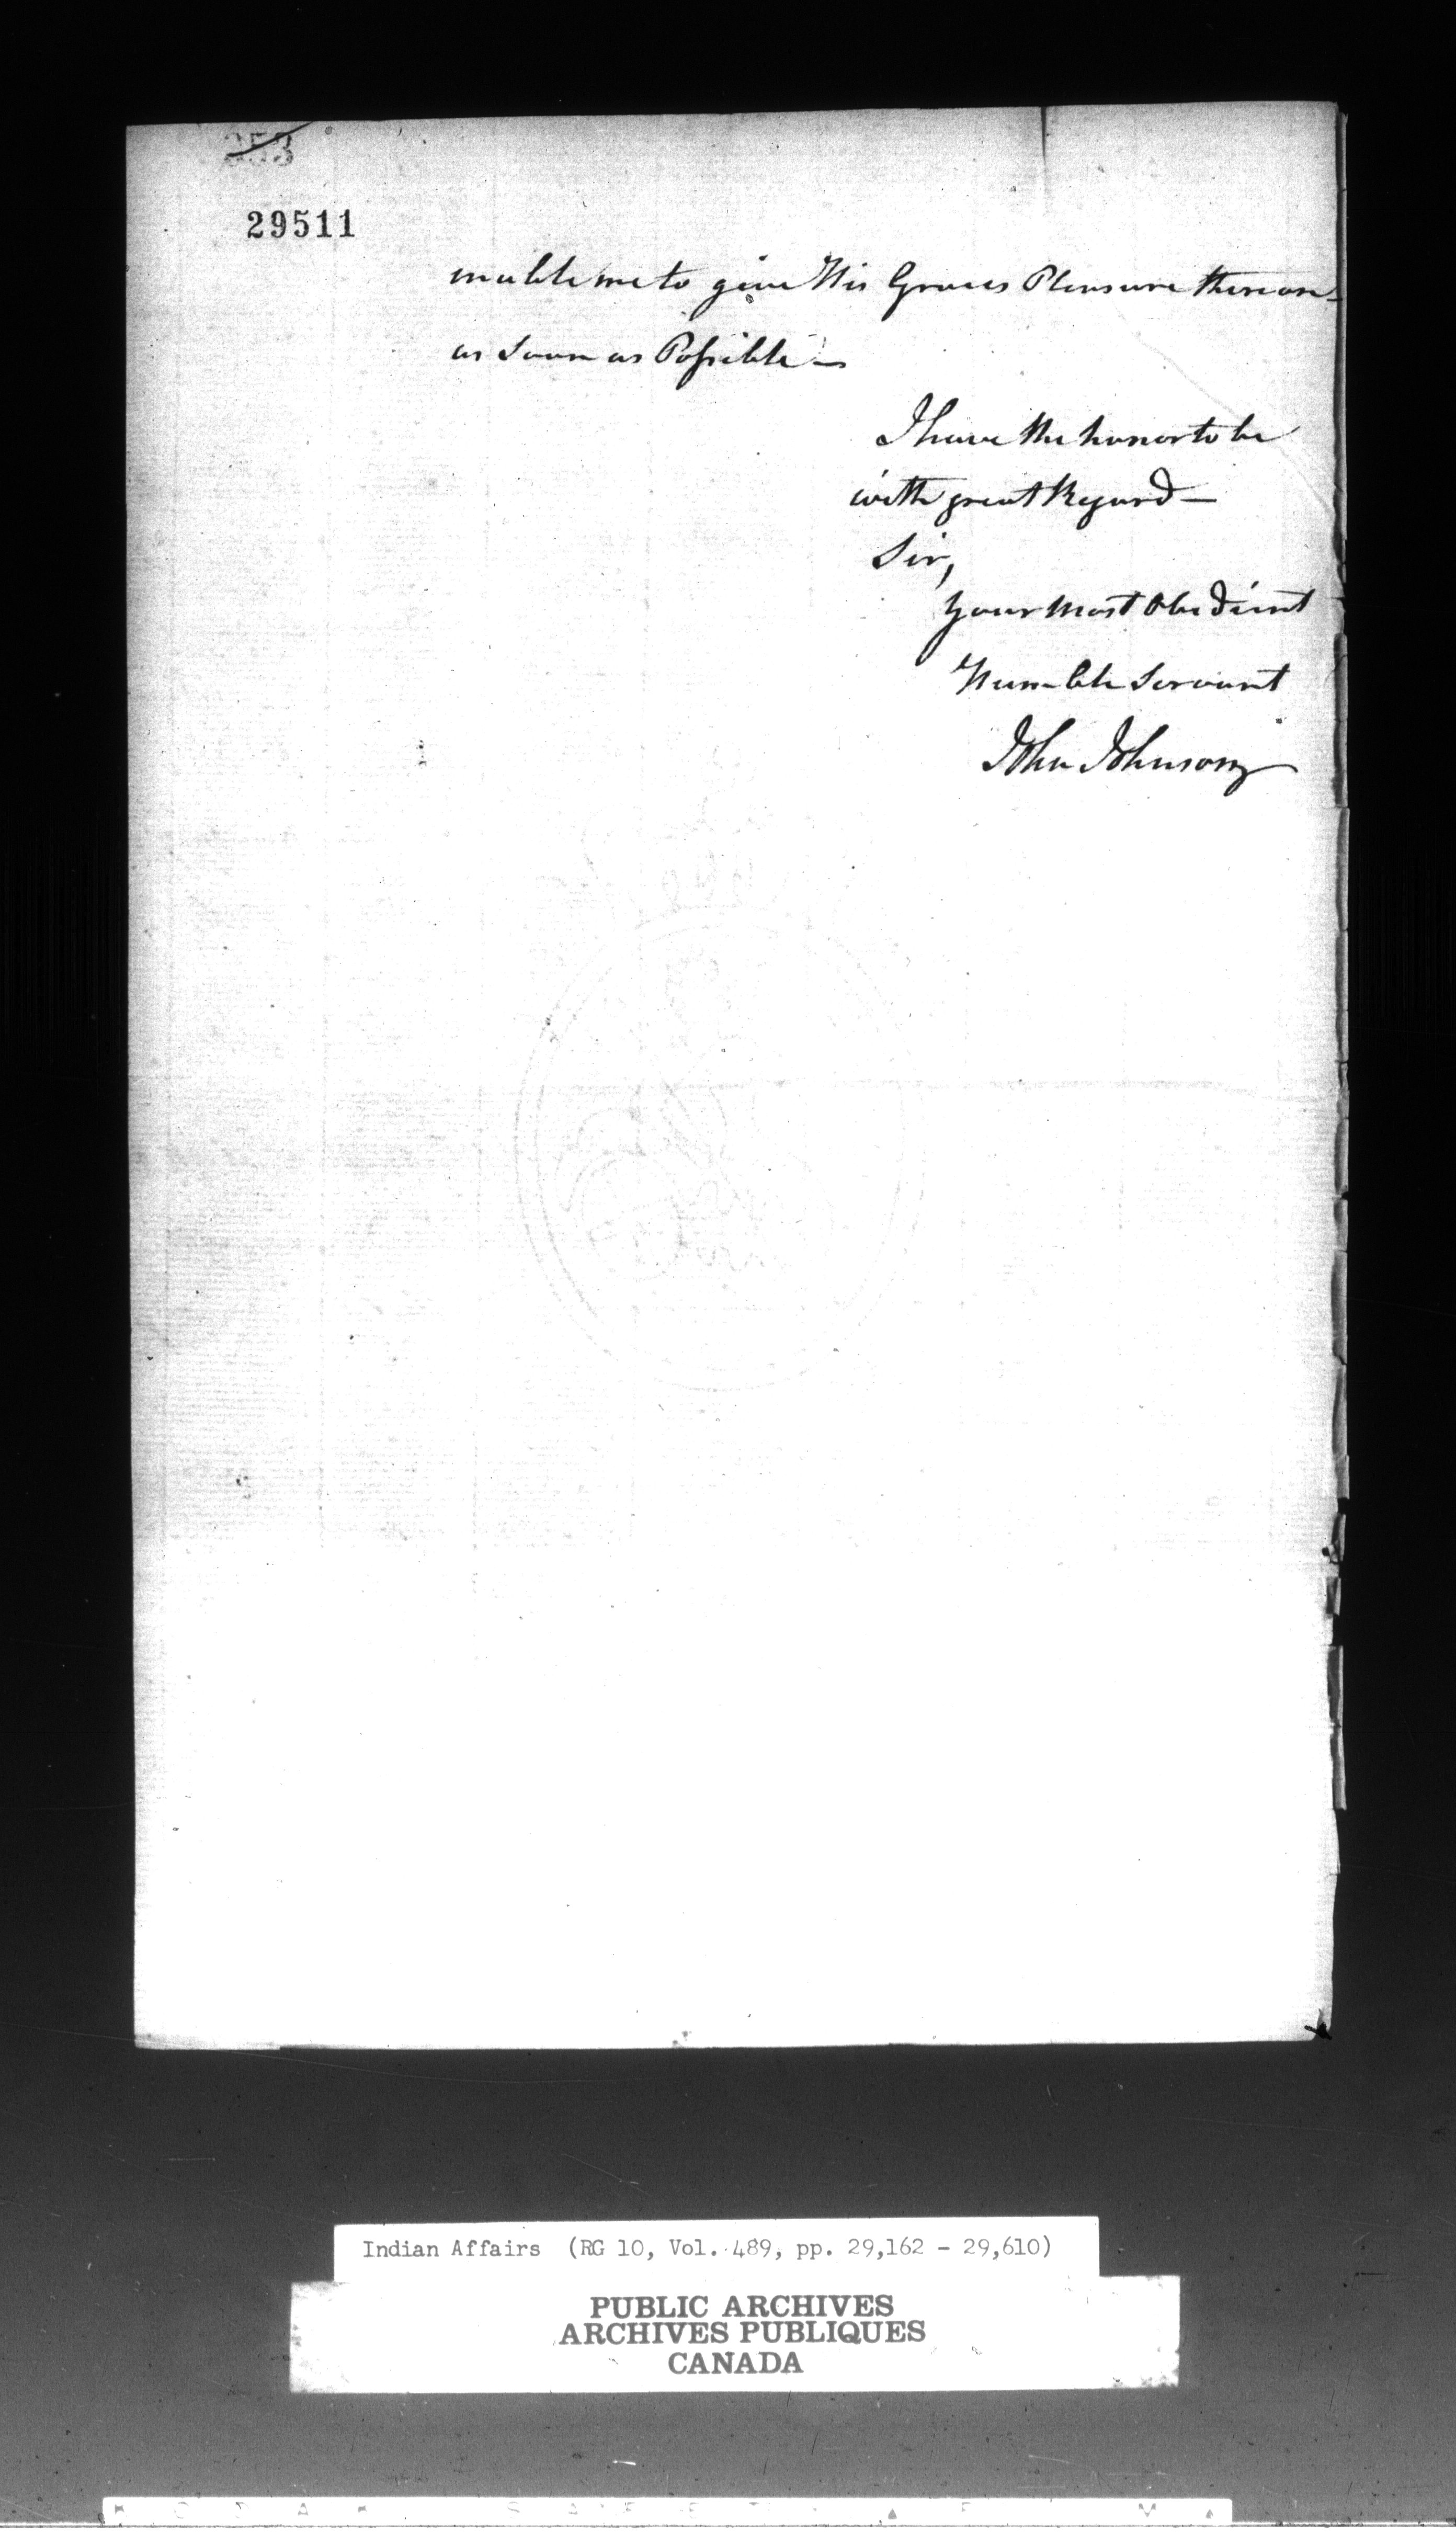 353
29511
enable me to give His Graces Pleasure thereon
as soon as Possible —
I have the honor to be
with great Regard —
Sir,
Your most Obedient
Humble Servant
John Johnson
Indian Affairs (RG 10, Vol. 489, pp. 29,162 - 29,610)
PUBLIC ARCHIVES
ARCHIVES PUBLIQUES
CANADA